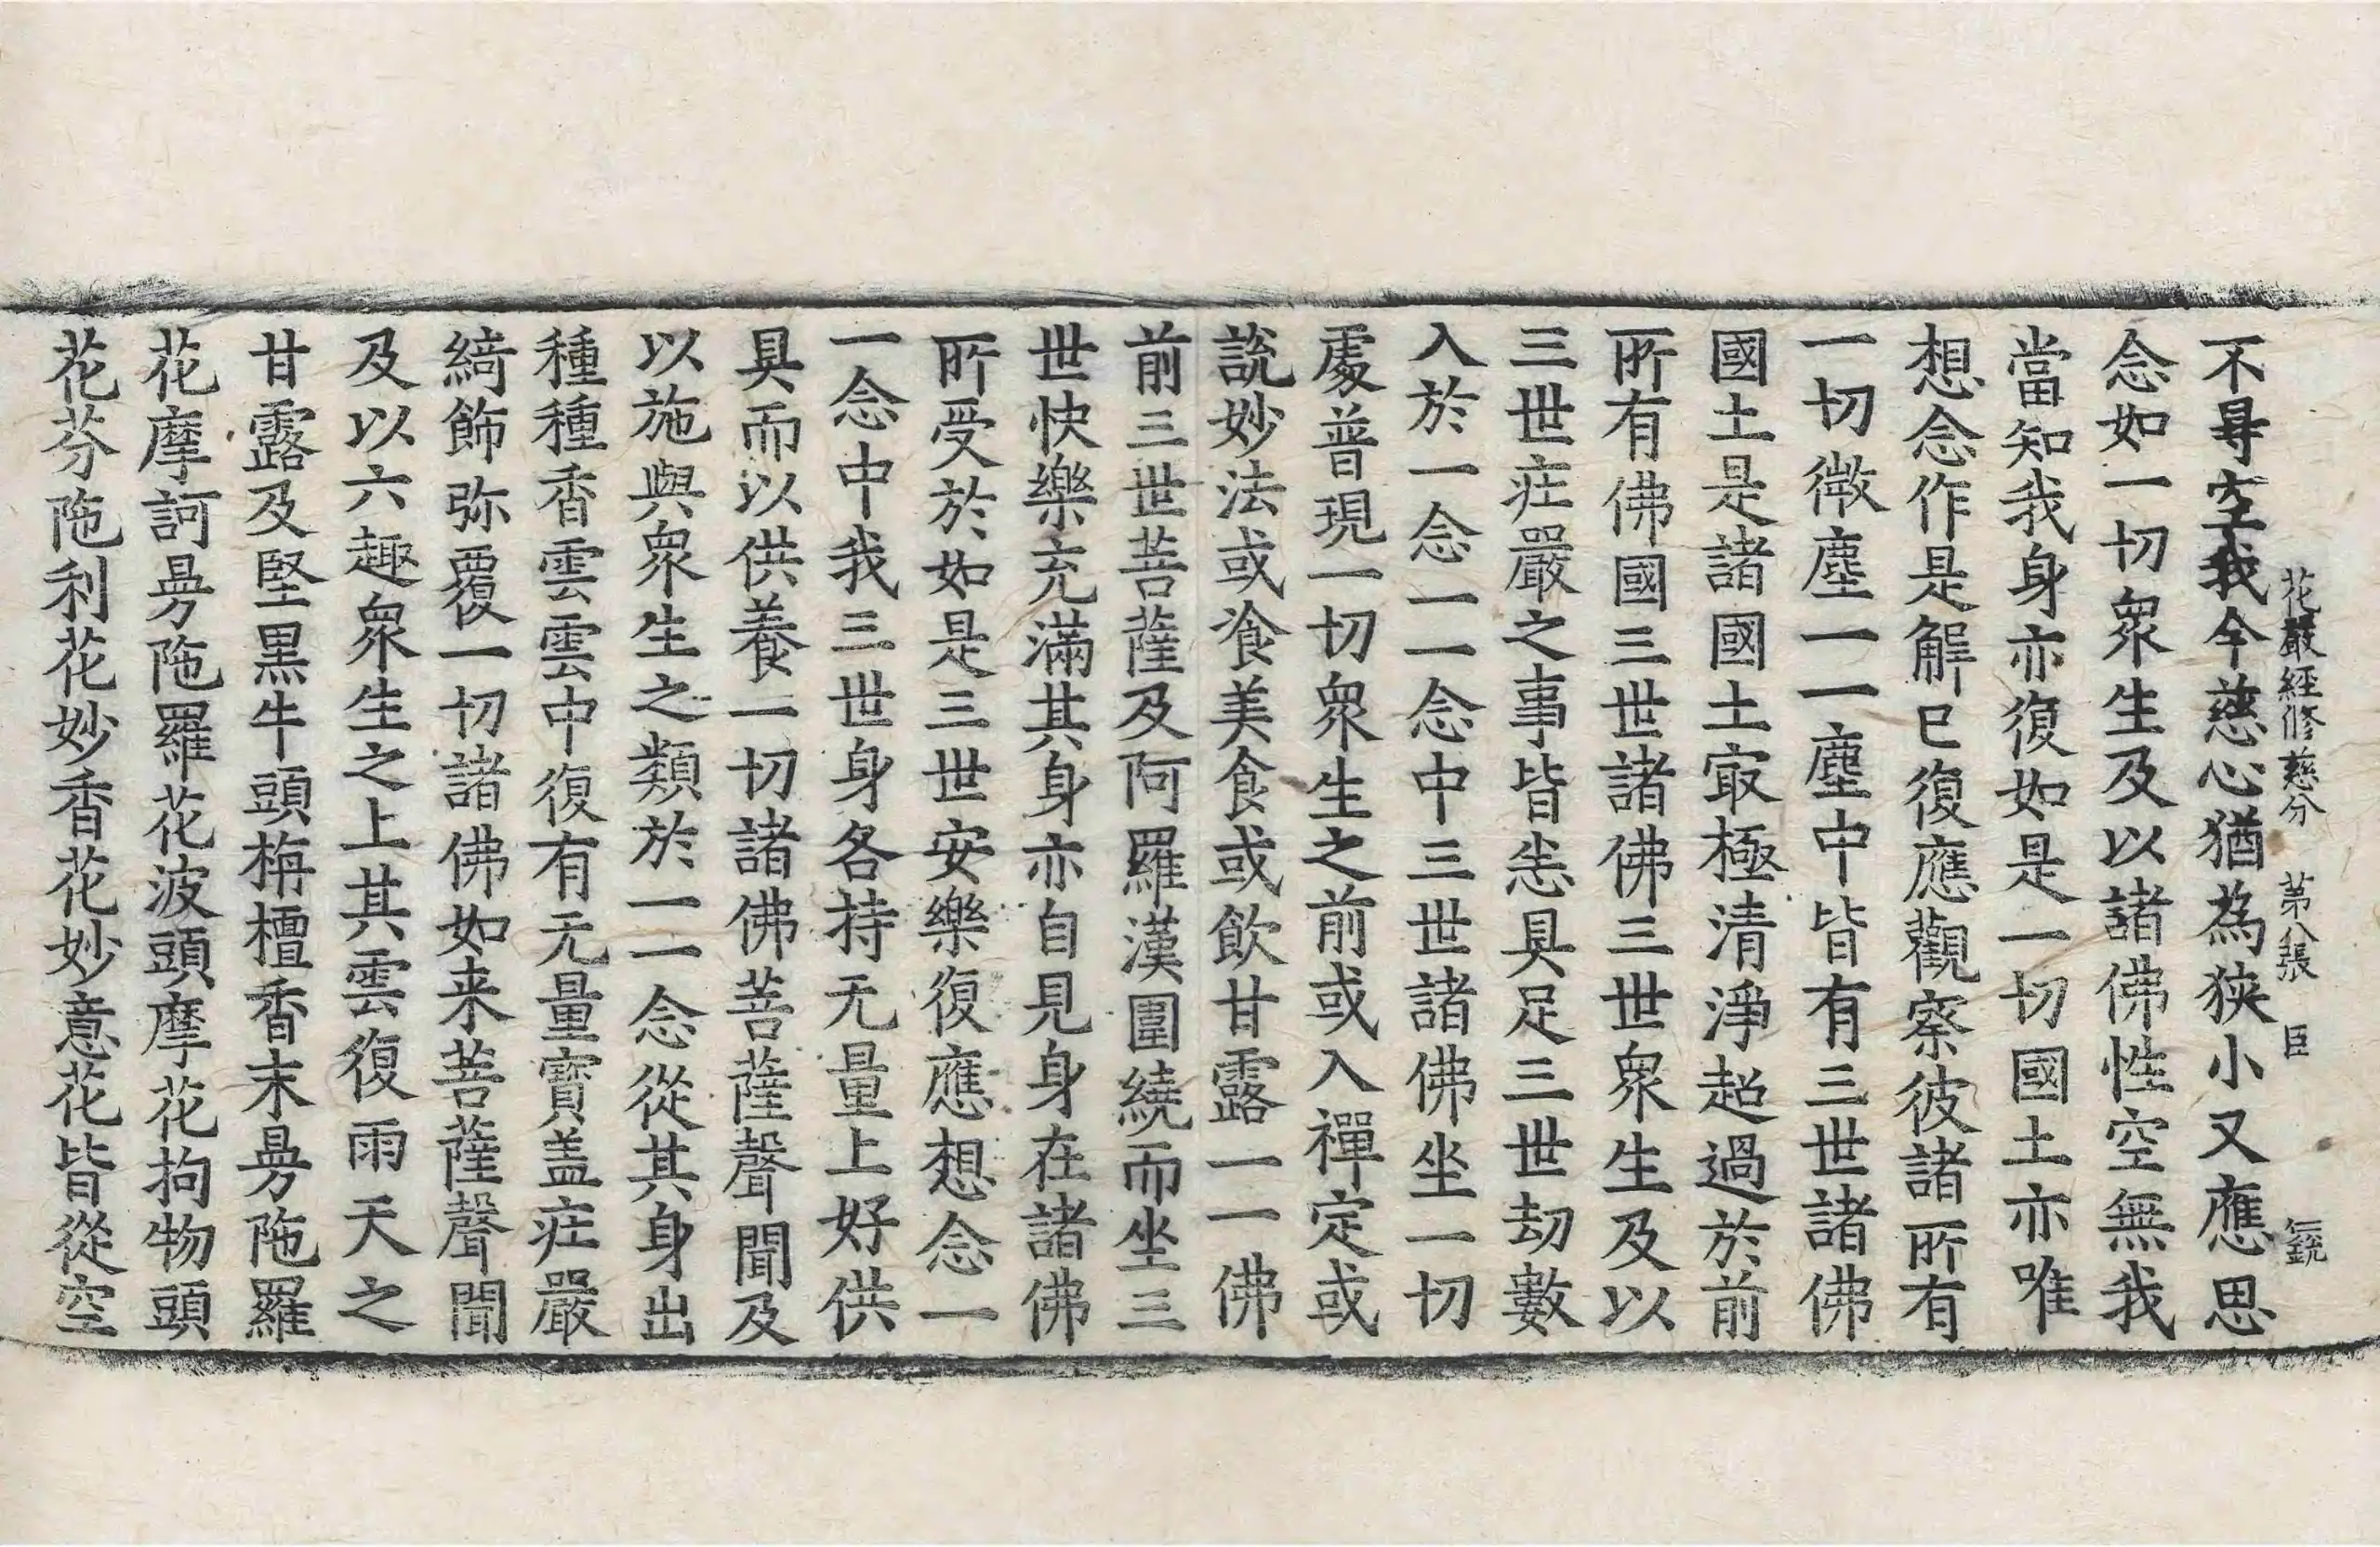 花嚴經修慈分 第八張 臣
不㝵空我今慈心猶為狹小又應思
念如一切衆生及以諸佛性空無我
當知我身亦復如是一切國土亦唯
想念作是解已復應觀察彼諸所有
一切微塵一一塵中皆有三世諸佛
國土是諸國土㝡極清淨超過於前
所有佛國三世諸佛三世衆生及以
三世庄嚴之事皆悉具足三世劫數
入於一念一一念中三世諸佛坐一切
處普現一切衆生之前或入禪定或
說妙法或飡美食或飲甘露一一佛
前三世菩薩及阿羅漢圍繞而坐三
世快樂充滿其身亦自見身在諸佛
所受於如是三世安樂復應想念一
一念中我三世身各持无量上好供
具而以供養一切諸佛菩薩聲聞及
以施與衆生之類於一一念從其身出
種種香雲雲中復有无量寶盖庄嚴
綺飾弥覆一切諸佛如来菩薩聲聞
及以六趣衆生之上其雲復雨天之
甘露及堅黒牛頭栴檀香末曼陁羅
花摩訶曼陁羅花波頭摩花拘物頭
花芬陁利花妙香花妙意花皆從空